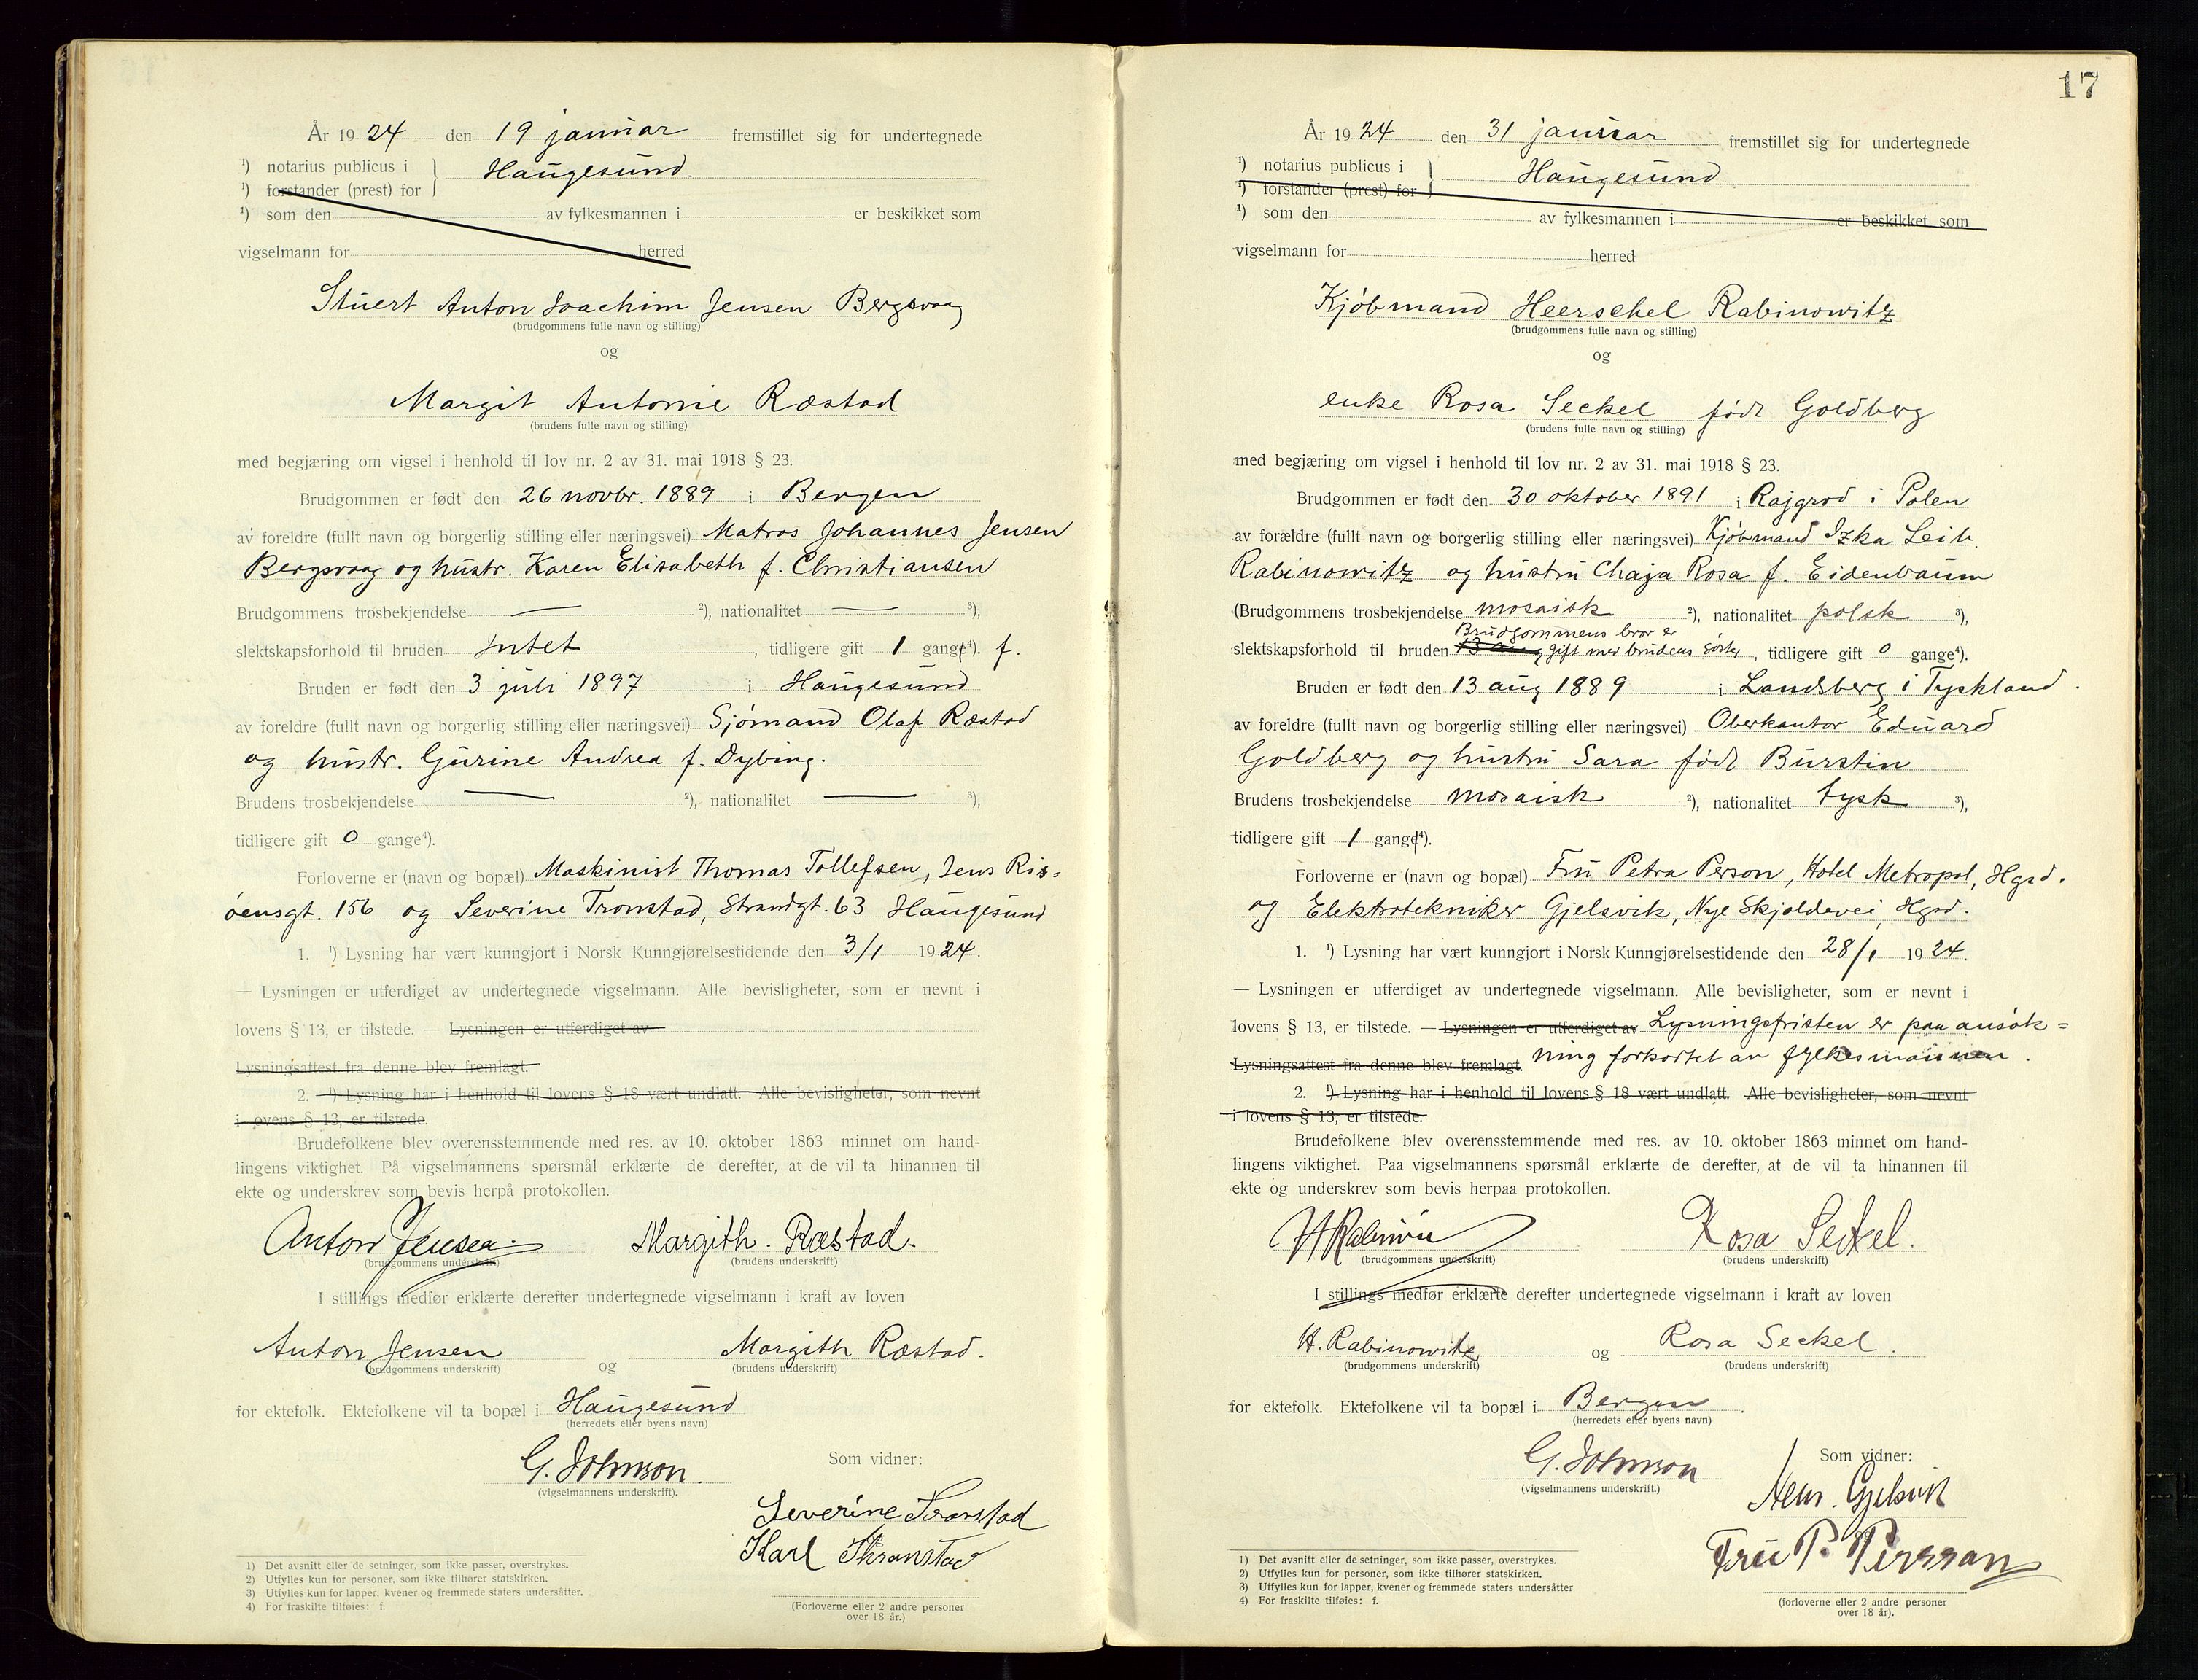 År 1924 den 19 januar fremstillet sig for undertegnede
¹) notarius publicus i } Haugesund.
¹) forstander (prest) for
¹) som den av fylkesmannen i er beskikket som
vigselmann for herred
Stuert Anton Joachim Jensen Bergsvaag
(brudgommens fulle navn og stilling)
og
Margit Antonie Ræstad
(brudens fulle navn og stilling)
med begjæring om vigsel i henhold til lov nr. 2 av 31. mai 1918 § 23.
Brudgommen er født den 26 novbr. 1889 i Bergen
av foreldre (fullt navn og borgerlig stilling eller næringsvei) Matros Johannes Jensen
Bergsvaag og hustr. Karen Elisabeth f. Christiansen
Brudgommens trosbekjendelse — ²), nationalitet — ³),
slektskapsforhold til bruden Intet, tidligere gift 1 gange⁴). f.
Bruden er født den 3 juli 1897 i Haugesund
av foreldre (fullt navn og borgerlig stilling eller næringsvei) Sjómand Olaf Ræstad
og hustr. Gurine Andrea f. Dybing.
Brudens trosbekjendelse — ²), nationalitet — ³),
tidligere gift 0 gange⁴).
Forloverne er (navn og bopæl) Maskinist Thomas Tollefsen, Jens Ris=
óensgt. 156 og Severine Tronstad, Strandgt. 63 Haugesund
1. ¹) Lysning har vært kunngjort i Norsk Kunngjørelsestidende den 3/1 1924.
— Lysningen er utferdiget av undertegnede vigselmann. Alle bevisligheter, som er nevnt i
lovens § 13, er tilstede. — Lysningen er utferdiget av
Lysningsattest fra denne blev fremlagt.
2. ¹) Lysning har i henhold til lovens § 18 vært undlatt. Alle bevisligheter, som nevnt
i lovens § 13, er tilstede.
Brudefolkene blev overensstemmende med res. av 10. oktober 1863 minnet om hand-
lingens viktighet. På vigselmannens spørsmål erklærte de derefter, at de vil ta hinannen til
ekte og underskrev som bevis herpå protokollen.
Anton Jensen. Margith. Ræstad.
(brudgommens underskrift) (brudens underskrift)
I stillings medfør erklærte derefter undertegnede vigselmann i kraft av loven
Anton Jensen og Margith Ræstad.
(brudgommens underskrift) (brudens underskrift)
for ektefolk. Ektefolkene vil ta bopæl i Haugesund
(herredets eller byens navn)
G. Johnson.
(vigselmannens underskrift).
Som vidner:
Severine Tronstad
Karl Thranstad
1) Det avsnitt eller de setninger, som ikke passer, overstrykes.
2) Utfylles kun for personer, som ikke tilhører statskirken.
3) Utfylles kun for lapper, kvener og fremmede staters undersåtter.
4) For fraskilte tilføies: f.
(Forloverne eller 2 andre personer
over 18 år.)
17
År 1924 den 31 januar fremstillet sig for undertegnede
¹) notarius publicus i } Haugesund
¹) forstander (prest) for
¹) som den av fylkesmannen i er beskikket som
vigselmann for herred
Kjóbmand Heerschel Rabinowitz
(brudgommens fulle navn og stilling)
og
enke Rosa Seckel født Goldberg
(brudens fulle navn og stilling)
med begjæring om vigsel i henhold til lov nr. 2 av 31. mai 1918 § 23.
Brudgommen er født den 30 oktober 1891 i Rajgrod i Polen
av forældre (fullt navn og borgerlig stilling eller næringsvei) Kjóbmand Izka Leib
Rabinowitz og hustru Chaja Rosa f. Eidenbaum
(Brudgommens trosbekjendelse mosaisk ²), nationalitet polsk ³),
Brudgommens bror er
slektskapsforhold til bruden 13 aug gift med brudens sóster, tidligere gift 0 gange⁴).
Bruden er født den 13 aug 1889 i Landsberg i Tyskland.
av foreldre (fullt navn og borgerlig stilling eller næringsvei) Oberkantor Eduard
Goldberg og hustru Sara født Burstin
Brudens trosbekjendelse mosaisk ²), nationalitet tysk ³),
tidligere gift 1 gange⁴).
Forloverne er (navn og bopæl) Fru Petra Person, Hotel Metropol, Hgsd.
og Elektrotekniker Gjelsvik, Nye Skjoldevei, Hgsd.
1. ¹) Lysning har vært kunngjort i Norsk Kunngjørelsestidende den 28/1 1924.
— Lysningen er utferdiget av undertegnede vigselmann. Alle bevisligheter, som er nevnt i
lovens § 13, er tilstede. — Lysningen er utferdiget av Lysningsfristen er paa ansók=
Lysningsattest fra denne blev fremlagt. ning forkortet av fylkesmannen.
2. ¹) Lysning har i henhold til lovens § 18 vært undlatt. Alle bevisligheter, som nevnt
i lovens § 13, er tilstede.
Brudefolkene blev overensstemmende med res. av 10. oktober 1863 minnet om hand-
lingens viktighet. Paa vigselmannens spørsmål erklærte de derefter, at de vil ta hinannen til
ekte og underskrev som bevis herpaa protokollen.
Rosa Seckel.
(brudgommens underskrift) (brudens underskrift)
I stillings medfør erklærte derefter undertegnede vigselmann i kraft av loven
H. Rabinowitz og Rosa Seckel.
(brudgommens underskrift) (brudens underskrift)
for ektefolk. Ektefolkene vil ta bopæl i Bergen.
(herredets eller byens navn)
G. Johnson
(vigselmannens underskrift.)
Som vidner:
Gjelsvik
Fru P. Perssan
1) Det avsnitt eller de setninger, som ikke passer, overstrykes.
2) Utfylles kun for personer, som ikke tilhører statskirken.
3) Utfylles kun for lapper, kvener og fremmede staters undersåtter
4) For fraskilte tilføies: f.
(forloverne eller 2 andre personer
over 18 år).